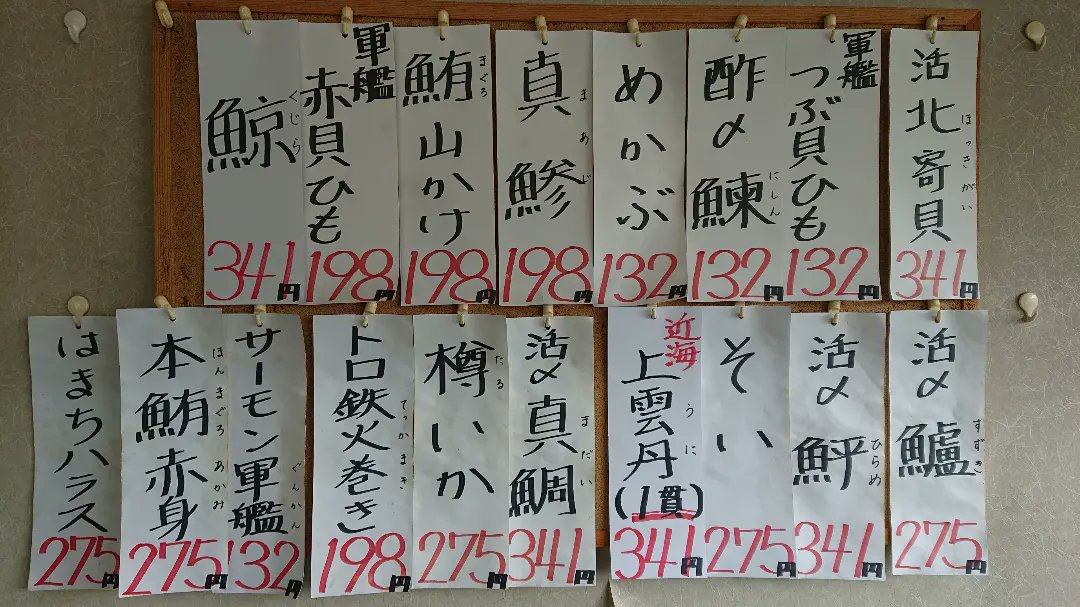 活北寄貝
ほっきがい
341円
軍艦
つぶ貝ひも
132円
酢〆鰊
にしん
132円
めかぶ
132円
真鯵
まあじ
198円
鮪山かけ
まぐろ
198円
軍艦
赤貝ひも
198円
鯨
くじら
341円
活〆鱸
すずき
275円
活〆鮃
ひらめ
341円
そい
275円
近海
上雲丹(1貫)
うに
341円
活〆真鯛
まだい
341円
樽いか
たる
275円
トロ鉄火巻き
てっかまき
198円
サーモン軍艦
ぐんかん
132円
本鮪赤身
ほんまぐろあかみ
275円
はまちハラス
275円